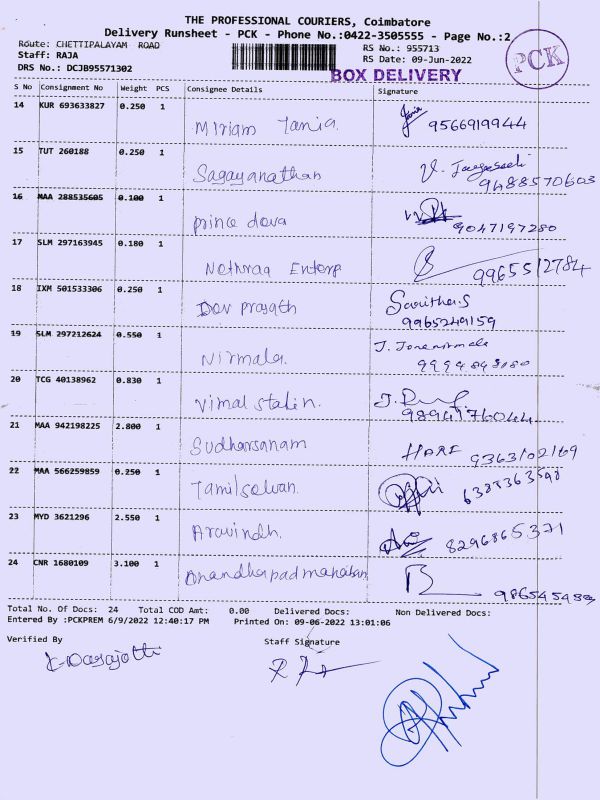 THE PROFESSIONAL COURIERS, Coimbatore
Delivery Runsheet - PCK - Phone No.:0422-3505555 - Page No.:2
Route: CHETTIPALAYAM ROAD
Staff: RAJA
DRS No.: DCJB95571302
RS No.: 955713
RS Date: 09-Jun-2022
BOX DELIVERY
PCK
S No Consignment No Weight PCS Consignee Details Signature
14 KUR 693633827 0.250 1 Miriam Tania. 9566919944
15 TUT 260188 0.250 1 Sagayanathan 9488570603
16 MAA 288535605 0.100 1 prince deva 9047197280
17 SLM 297163945 0.180 1 Nethraa Enterp 9965512784
18 IXM 501533306 0.250 1 Dev prasath Savitha.S
9965249159
19 SLM 297212624 0.550 1 Nirmala.
20 TCG 40138962 0.830 1 Vimal stalin.
21 MAA 942198225 2.800 1 Sudharsanam HARI 9363102169
22 MAA 566259859 0.250 1 Tamilselvan. 6388363598
23 MYD 3621296 2.550 1 Aravindh. 8296865371
24 CNR 1680109 3.100 1 Anandhapadmanaban
Total No. Of Docs: 24 Total COD Amt: 0.00 Delivered Docs: Non Delivered Docs:
Entered By :PCKPREM 6/9/2022 12:40:17 PM Printed On: 09-06-2022 13:01:06
Verified By Staff Signature